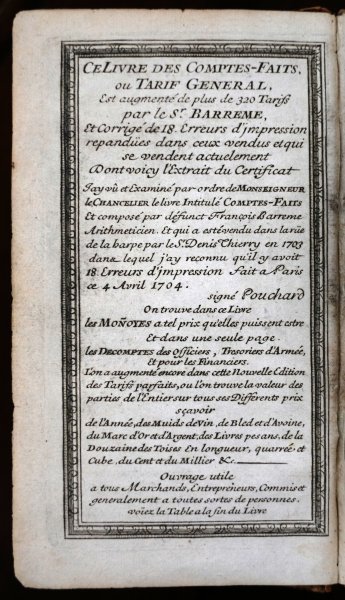 CE LIVRE DES COMPTES-FAITS,
ou TARIF GENERAL,
Est augmenté de plus de 320 Tarifs
par le Sr. BARREME,
Et Corrigé de 18. Erreurs d'jmpression
repanduës dans ceux vendus et qui
se vendent actuelement
Dont voicy l'Extrait du Certificat
J'ay vû et Examiné par ordre de MONSEIGNEUR
le CHANCELIER le livre Intitulé COMPTES-FAITS
Et composé par défunct François Barreme
Arithmeticien. Et qui a esté vendu dans la rüe
de la harpe par le Sr. Denis Thierry en 1703
dans lequel j'ay reconnu qu'il y avoit
18 Erreurs d'jmpression Fait a Paris
ce 4 Avril 1704.
signé Pouchard
On trouve dans ce Livre
les MOÑOYES a tel prix qu'elles puissent estre
Et dans une seule page.
les DECOMPTES des Officiers, Tresoriers d'Armée,
Et pour les Financiers.
L'on a augmenté encore dans cette Nouvelle Edition
des Tarifs parfaits, ou l'on trouve la valeur des
parties de l'Entier sur tous ses Differents prix
sçavoir
de l'Année, des Muids de Vin, de Bled et d'Avoine,
du Marc d'Or et d'Argent, des Livres pesans, de la
Douzaine des Toises En longueur, quarreé et
Cube, du Cent et du Millier &c.
Ouvrage utile
a tous Marchands, Entrepreneurs, Commis et
generalement a toutes sortes de personnes.
voïez la Table a la fin du Livre